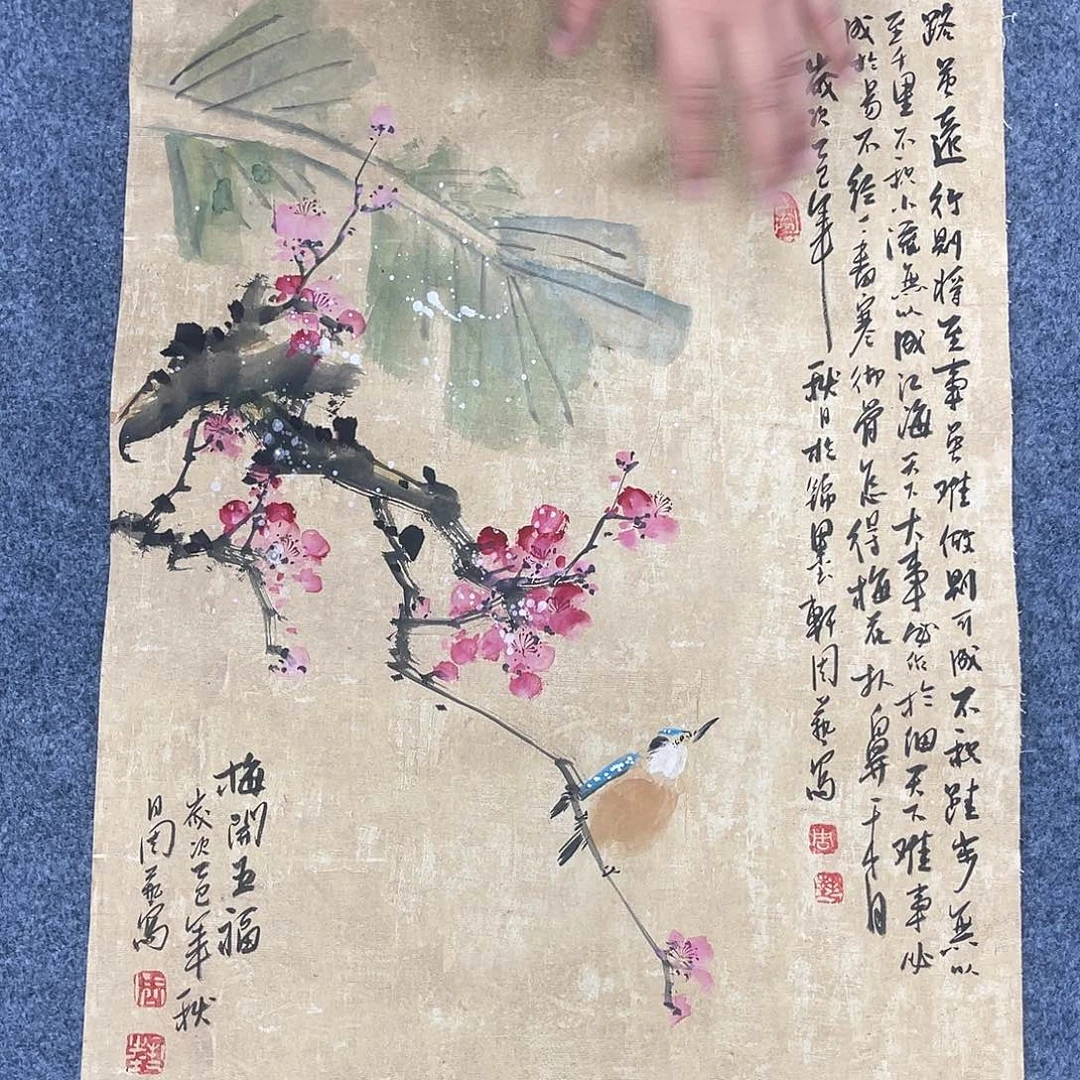 路虽遠行則將至事虽难做則可成不积跬步無以
至千里不积小流無以成江海天下大事必作於细天下难事必
成於易不经一番寒彻骨怎得梅花扑鼻
歲次乙巳年秋日於锦墨軒周藝寫
周
藝
梅開五福
歲次乙巳年秋
日周藝寫
周
藝